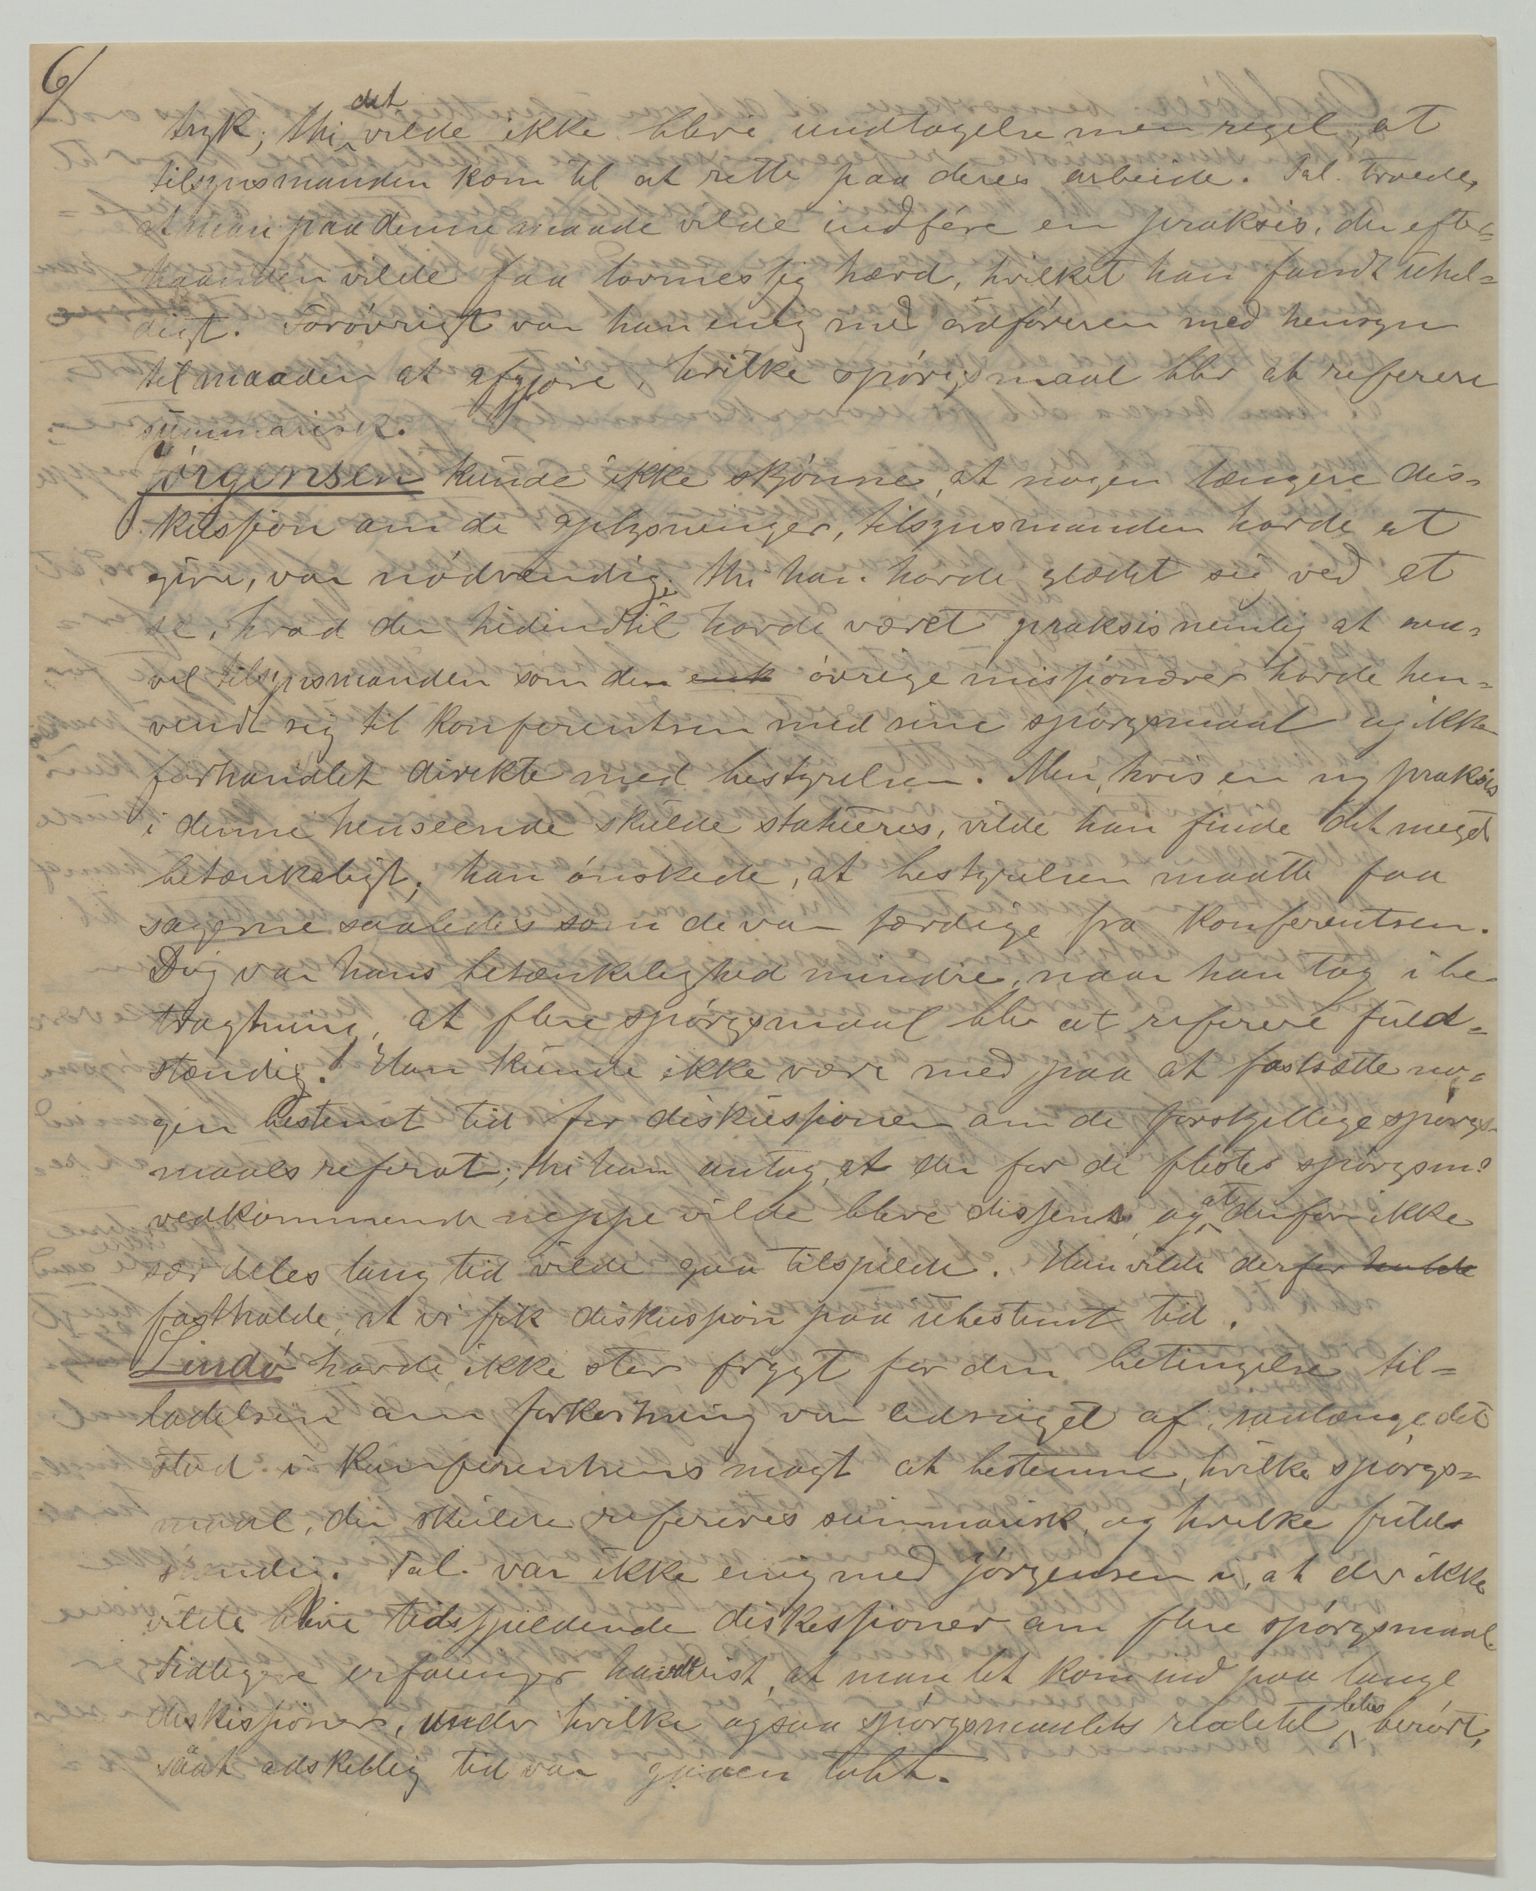 6/
tryk; thi det vilde ikke blive undtagelse men regel, at
tilsynsmanden kom til at rette paa deres arbeide. Tal. troede,
at man paa denne maade vilde indføre en praksis, der efter=
haanden vilde faa lovmessig hævd, hvilket han fandt uhel=
digt. Forøvrigt var han enig med ordføreren med hensyn
til maaden at afgjøre, hvilke spørgsmaal blir at referere
summarisk.
Jørgensen kunde ikke skjønne, at nogen længere dis=
kussjon om de oplysninger, tilsynsmanden havde at
give, var nødvendig; thi han havde glædet sig ved at
se, hvad der hidindtil havde været praksis nemlig at saa=
vel tilsynsmanden som den enk øvrige missjonærer havde hen=
vendt sig til Konferentsen med sine spørgsmaal og ikke
forhandlet direkte med bestyrelsen. Men, hvis en ny praksis
i denne henseende skulde statueres, vilde han finde det meget
betænkeligt; han ønskede, at bestyrelsen maatte faa
sagerne saaledes som de var færdige fra Konferentsen.
Dog var hans betænkelighed mindre, naar han tog i be
tragtning, at flere spørgsmaal blir at referere fuld=
stændig. Han kunde ikke være med paa at fastsætte no=
gen bestemt tid for diskussjonen om de forskjellige spørgs=
maals referat; thi han antog, at der for de flestes spørgsm.
vedkommende neppe vilde blive dissens, og at derfor ikke
særdeles lang tid vilde gaa tilspilde. Han vilde derfor holde
fastholde, at vi fik diskussjon paa ubestemt tid.
Lindø havde ikke stor frygt for den betingelse til=
ladelsen om forkortning var ledsaget af, saalænge det
stod i Konferentsens magt at bestemme, hvilke spørgs=
maal, der skulde refereres summarisk, og hvilke fuld=
stændig. Tal. var ikke enig med Jørgensen i, at der ikke
vilde blive tidsspildende diskussjoner om flere spørgsmaal.
Tidligere erfaringer havde vist, at man let kom ind paa lange
diskussjoner, under hvilke ogsaa spørgsmaalets realitet blev berørt,
saa at adskillig tid var gaaen tabt.